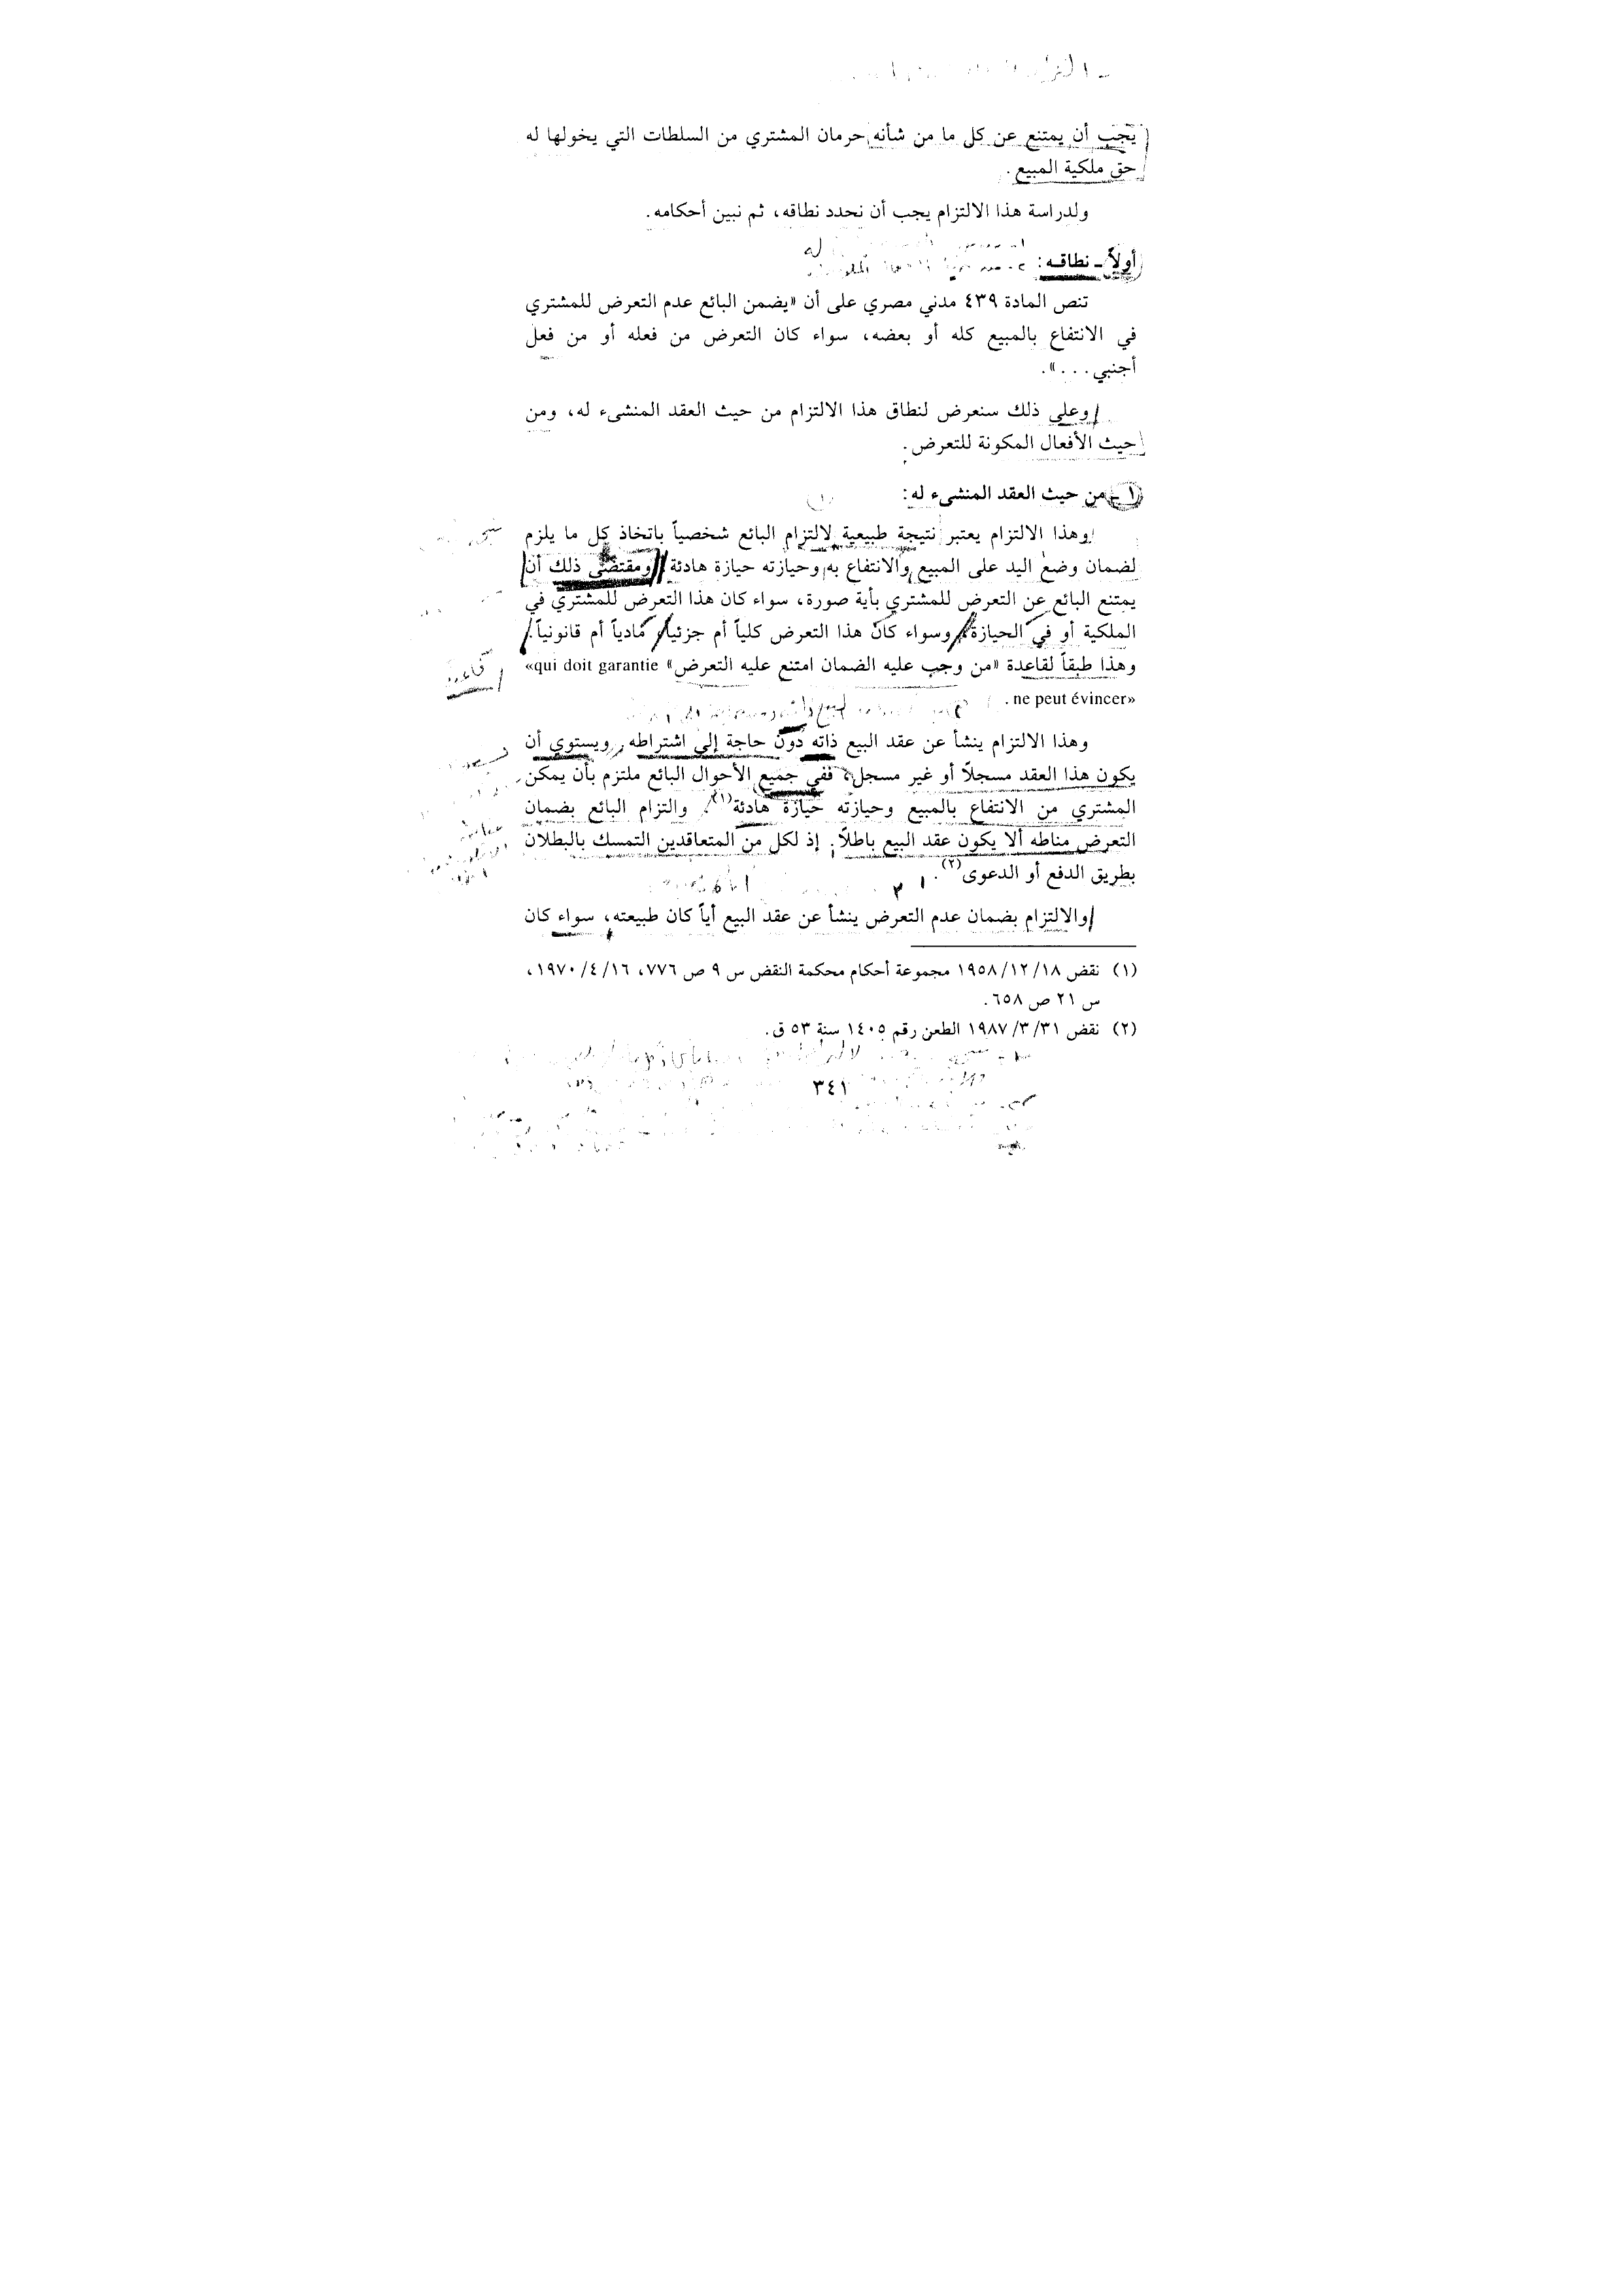 يجب أن يمتنع عن كل ما من شأنه حرمان المشتري من السلطات التي يخولها له
حق ملكية المبيع.
ولدراسة هذا الالتزام يجب أن نحدد نطاقه، ثم نبين أحكامه.
أولاً ـ نطاقه:
تنص المادة ٤٣٩ مدني مصري على أن «يضمن البائع عدم التعرض للمشتري
في الانتفاع بالمبيع كله أو بعضه، سواء كان التعرض من فعله أو من فعل
أجنبي...».
وعلى ذلك سنعرض لنطاق هذا الالتزام من حيث العقد المنشىء له، ومن
حيث الأفعال المكونة للتعرض.
١ ـ من حيث العقد المنشىء له:
وهذا الالتزام يعتبر نتيجة طبيعية لالتزام البائع شخصياً باتخاذ كل ما يلزم
لضمان وضع اليد على المبيع والانتفاع به وحيازته حيازة هادئة. ومقتضى ذلك أن
يمتنع البائع عن التعرض للمشتري بأية صورة، سواء كان هذا التعرض للمشتري في
الملكية أو في الحيازة، وسواء كان هذا التعرض كلياً أم جزئياً، مادياً أم قانونياً.
وهذا طبقاً لقاعدة «من وجب عليه الضمان امتنع عليه التعرض» «qui doit garantie
ne peut évincer».
وهذا الالتزام ينشأ عن عقد البيع ذاته دون حاجة إلى اشتراطه. ويستوي أن
يكون هذا العقد مسجلاً أو غير مسجل، ففي جميع الأحوال البائع ملتزم بأن يمكن
المشتري من الانتفاع بالمبيع وحيازته حيازة هادئة(١). والتزام البائع بضمان
التعرض مناطه ألا يكون عقد البيع باطلاً. إذ لكل من المتعاقدين التمسك بالبطلان
بطريق الدفع أو الدعوى(٢).
والالتزام بضمان عدم التعرض ينشأ عن عقد البيع أياً كان طبيعته، سواء كان
(١) نقض ١٩٥٨/١٢/١٨ مجموعة أحكام محكمة النقض س ٩ ص ٧٧٦، ١٩٧٠/٤/١٦،
س ٢١ ص ٦٥٨.
(٢) نقض ١٩٨٧/٣/٣١ الطعن رقم ١٤٠٥ سنة ٥٣ ق.
٣٤١